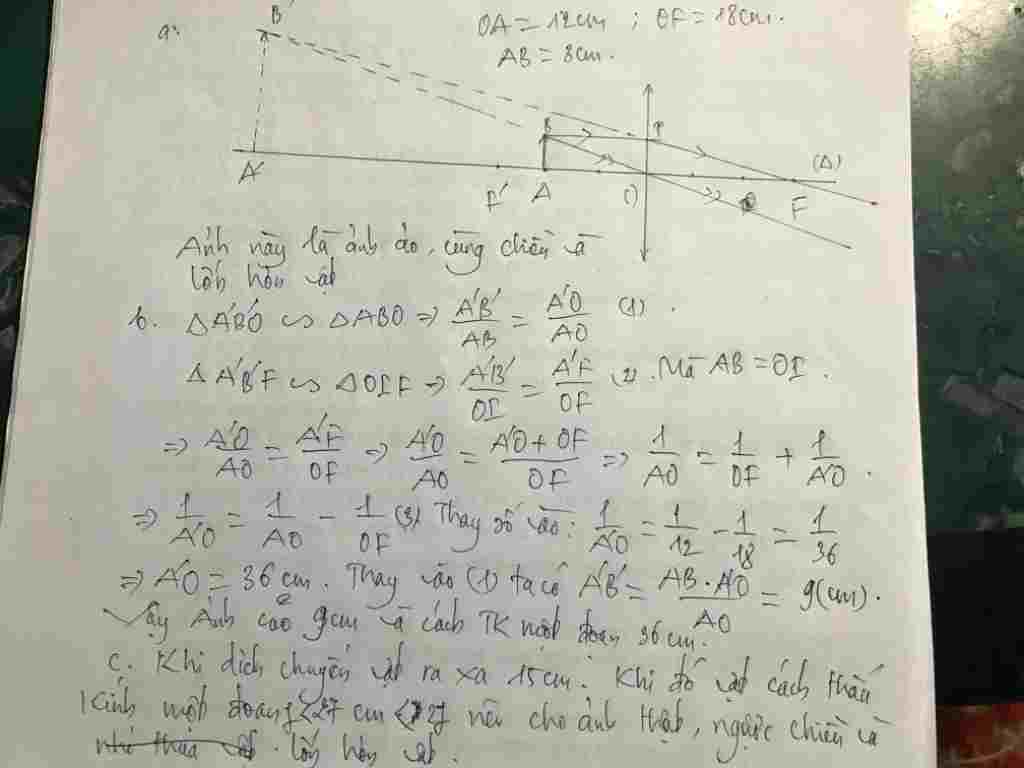 a. B' OA = 12cm ; OF = 18cm.
AB = 3cm.
B I (Δ)
A' F' A O F
Ảnh này là ảnh ảo, cùng chiều và
lớn hơn vật
b. ΔA'B'O ∽ ΔABO ⇒ A'B'/AB = A'O/AO (1).
ΔA'B'F ∽ ΔOIF ⇒ A'B'/OI = A'F/OF (2). Mà AB = OI.
⇒ A'O/AO = A'F/OF ⇒ A'O/AO = (A'O + OF)/OF ⇒ 1/AO = 1/OF + 1/A'O.
⇒ 1/A'O = 1/AO - 1/OF (3) Thay số vào: 1/A'O = 1/12 - 1/18 = 1/36
⇒ A'O = 36 cm. Thay vào (1) ta có A'B' = (AB.A'O)/AO = 9(cm).
Vậy Ảnh cao 9cm và cách TK một đoạn 36cm.
c. Khi dịch chuyển vật ra xa 15cm. Khi đó vật cách thấu
kính một đoạn 27 cm < 2f nên cho ảnh thật, ngược chiều và
lớn hơn vật.